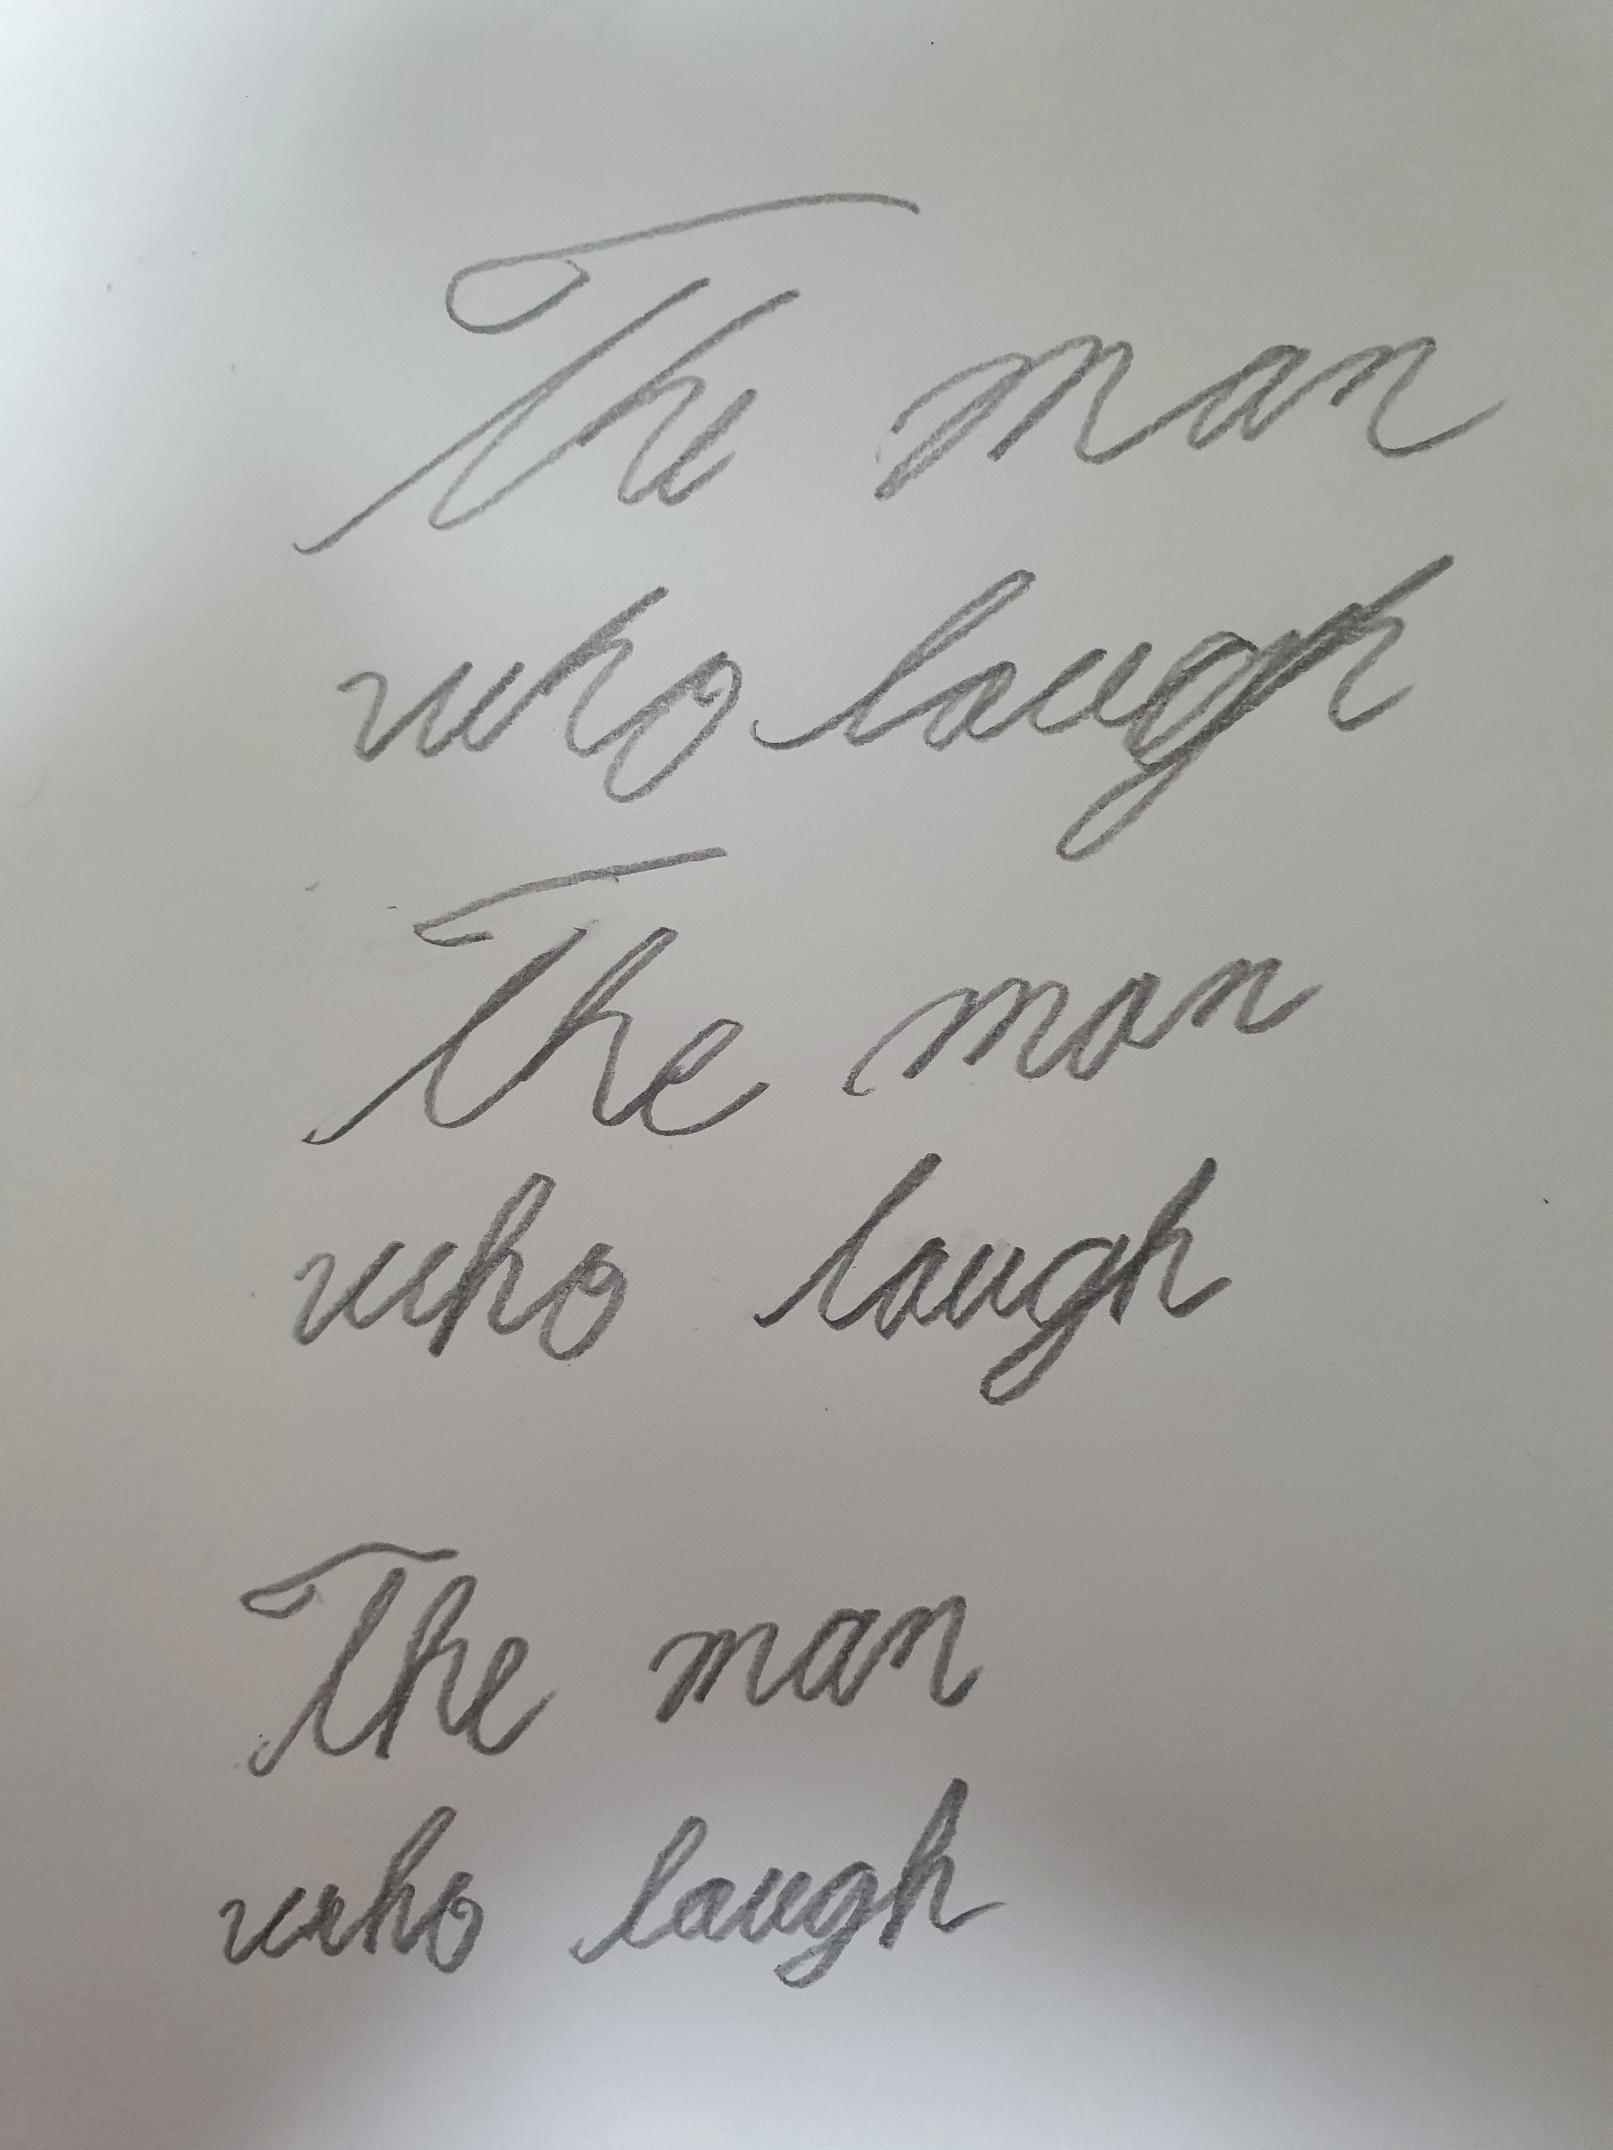 The man
who laugh
The man
who laugh
The man
who laugh